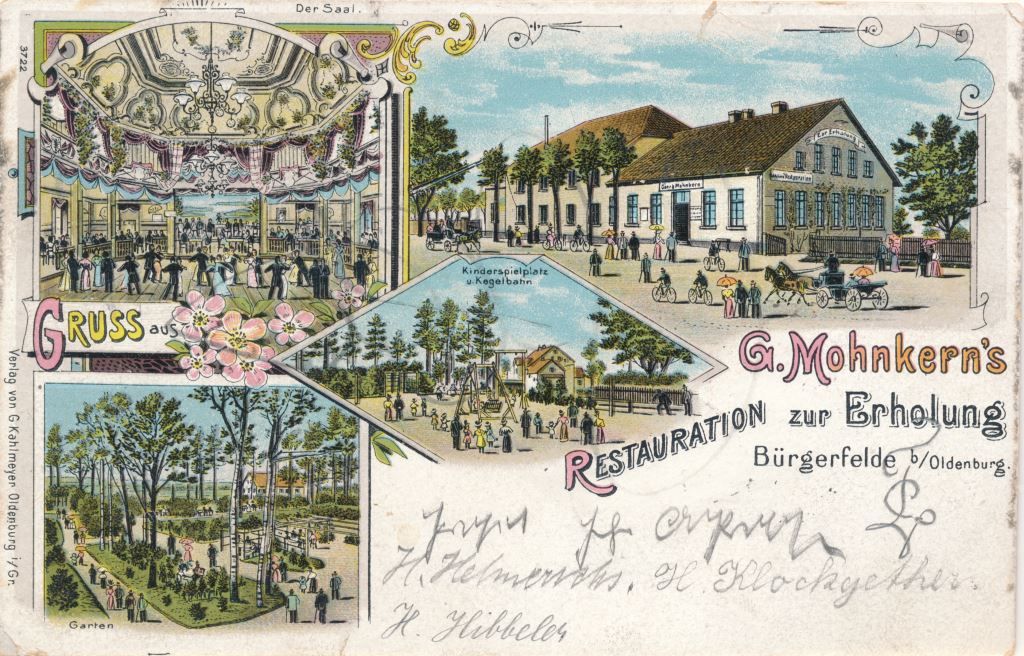 Der Saal.
3722
Zur Erholung
Georg Mohnkern
Restauration
Kinderspielplatz
u. Kegelbahn
GRUSS aus
G. Mohnkern's
RESTAURATION zur Erholung
Bürgerfelde b/Oldenburg.
Verlag von G. Kahlmeyer Oldenburg i/Gr.
Garten
H. Helmerichs. H. Klockgether.
H. Hibbeler